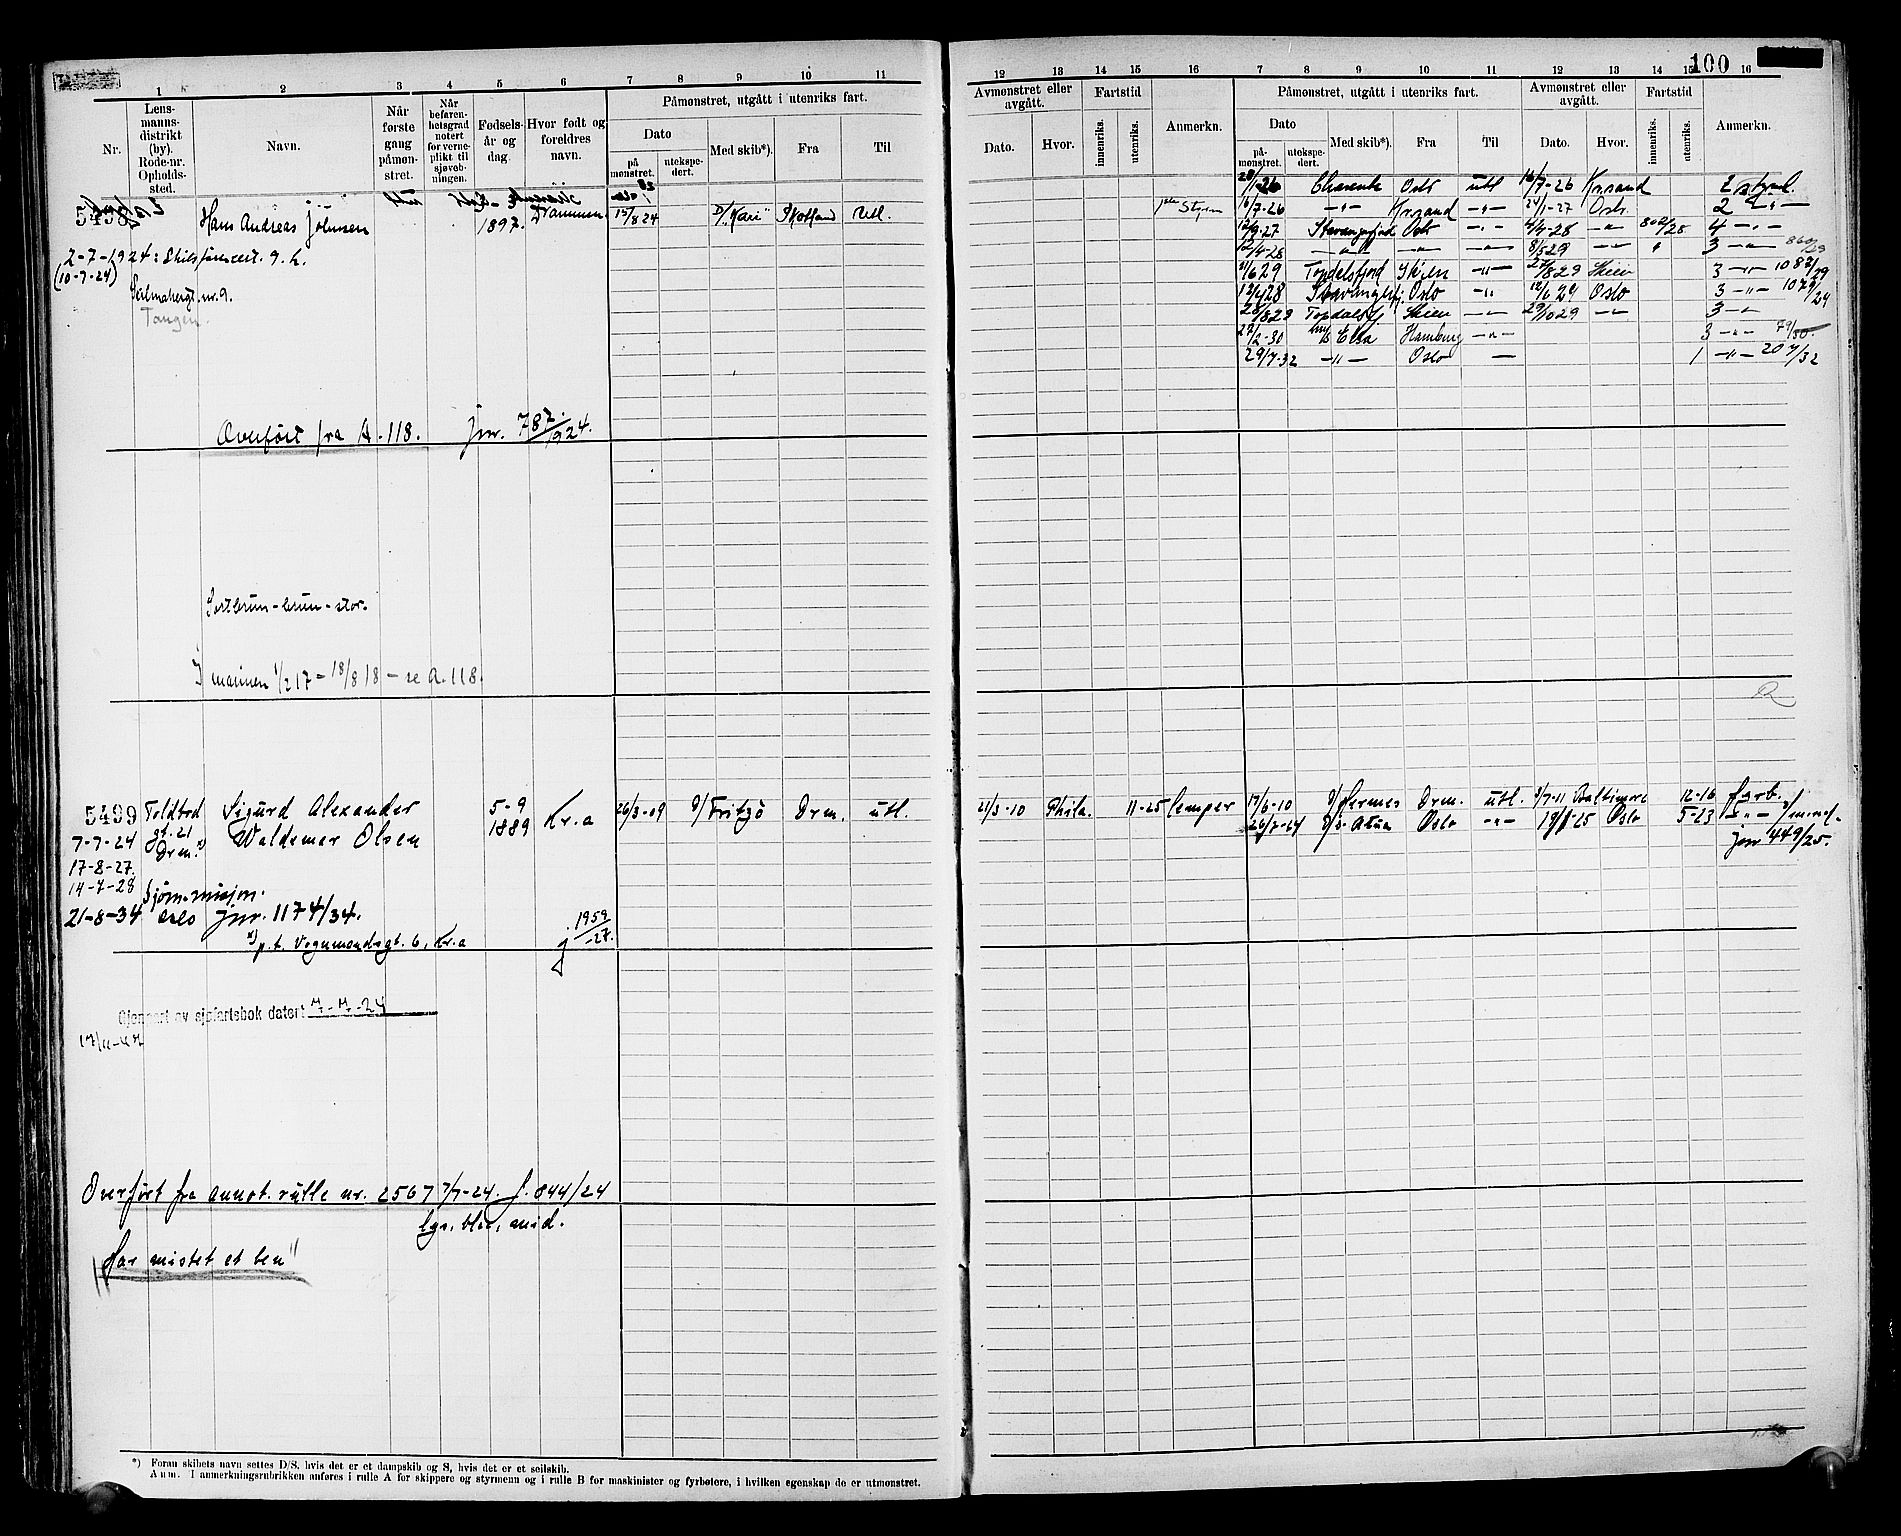 100
1 2 3 4 5 6 7 8 9 10 11
12 13 14 15 16 7 8 9 10 11 12 13 14 15 16
Nr.
Lens-
manns-
distrikt
(by).
Rode-nr.
Opholds-
sted.
Navn.
Når
første
gang
påmøn-
stret.
Når
befaren-
hetsgrad
notert
for verne-
plikt til
sjøveb-
ningen.
Fødsels-
år og
dag.
Hvor født og
foreldres
navn.
Påmønstret, utgått i utenriks fart.
Dato
på
mønstret.
utekspe-
dert.
Med skib*).
Fra
Til
Avmønstret eller
avgått.
Dato.
Hvor.
Fartstid
innenriks.
utenriks.
Anmerkn.
Påmønstret, utgått i utenriks fart.
Dato
på-
mønstret.
utekspe-
dert.
Med skib*).
Fra
Til
Avmønstret eller
avgått.
Dato.
Hvor.
Fartstid
innenriks.
utenriks.
Anmerkn.
5498
Hans Andreas Johnsen
1897.
Drammen.
15/8 24
D/ "Kari"
Skotland
Utl.
2-7-1924: Skibsførercert. g. h.
(10-7-24)
nr. 9.
Tangen.
Overført fra A. 118. jnr. 782/1924.
Sortbrun - brun - stor.
I marinen 1/2 17 - 18/8 18 - se A. 118.
1/1-26 Charente Oslo utl 16/7-26 Krsand 2 styrm.
16/7-26 -"- Krsand -"- 24/1-27 Oslo 2 -"-
12/9-27 Stavangerfjord Oslo -"- 4/4-28 -"- 809/28 4 -"-
12/4-28 -"- -"- -"- 8/5 29 -"- 3 -"- 860/29
1/6 29 Topdalsfjord Skien -"- 27/8 29 Skien 3 -"- 1082/29
12/4 28 Stavangerfj. Oslo -"- 12/6 29 Oslo 3 -"- 1079/24
28/8 29 Topdalsfj Skien -"- 29/10 29 -"- 3 -"-
27/2-30 Elsa Hamburg -"- 3 -"- 79/30
29/7-32 -"- Oslo - 1 -"- 207/32
5499
Toldbod
gt. 21
Drm. x)
Sigurd Alexander
Waldemar Olsen
5-9
1889
Kr.a
26/3-09 D/ Fritzö Drm. utl.
21/3-10 Phila. 11-25 lemper
17/6-10 D/ Hermes Drm. utl. 3/7-11 Baltimore 12-16 fyrb.
26/7-24 D/s. Atna Oslo -"- 19/1-25 Oslo 5-23 -"-
jnr 449/25.
7-7-24
17-8-27.
14-7-28
21-8-34 Oslo jnr. 1174/34.
x) p. t. Vognmandsgt. 6, Kr.a
j. 1959/-27.
Gjenpart av sjøfartsbok datert 7-7-24
17/11-47
Overført fra annot. rulle nr. 2567 7/7-24. j. 844/24
lys, blå, mid.
"Har mistet et ben"
*) Foran skibets navn settes D/S. hvis det er et dampskib og S, hvis det er et seilskib.
Anm. I anmerkningsrubrikken anføres i rulle A for skippere og styrmenn og i rulle B for maskinister og fyrbøtere, i hvilken egenskap de er utmønstret.